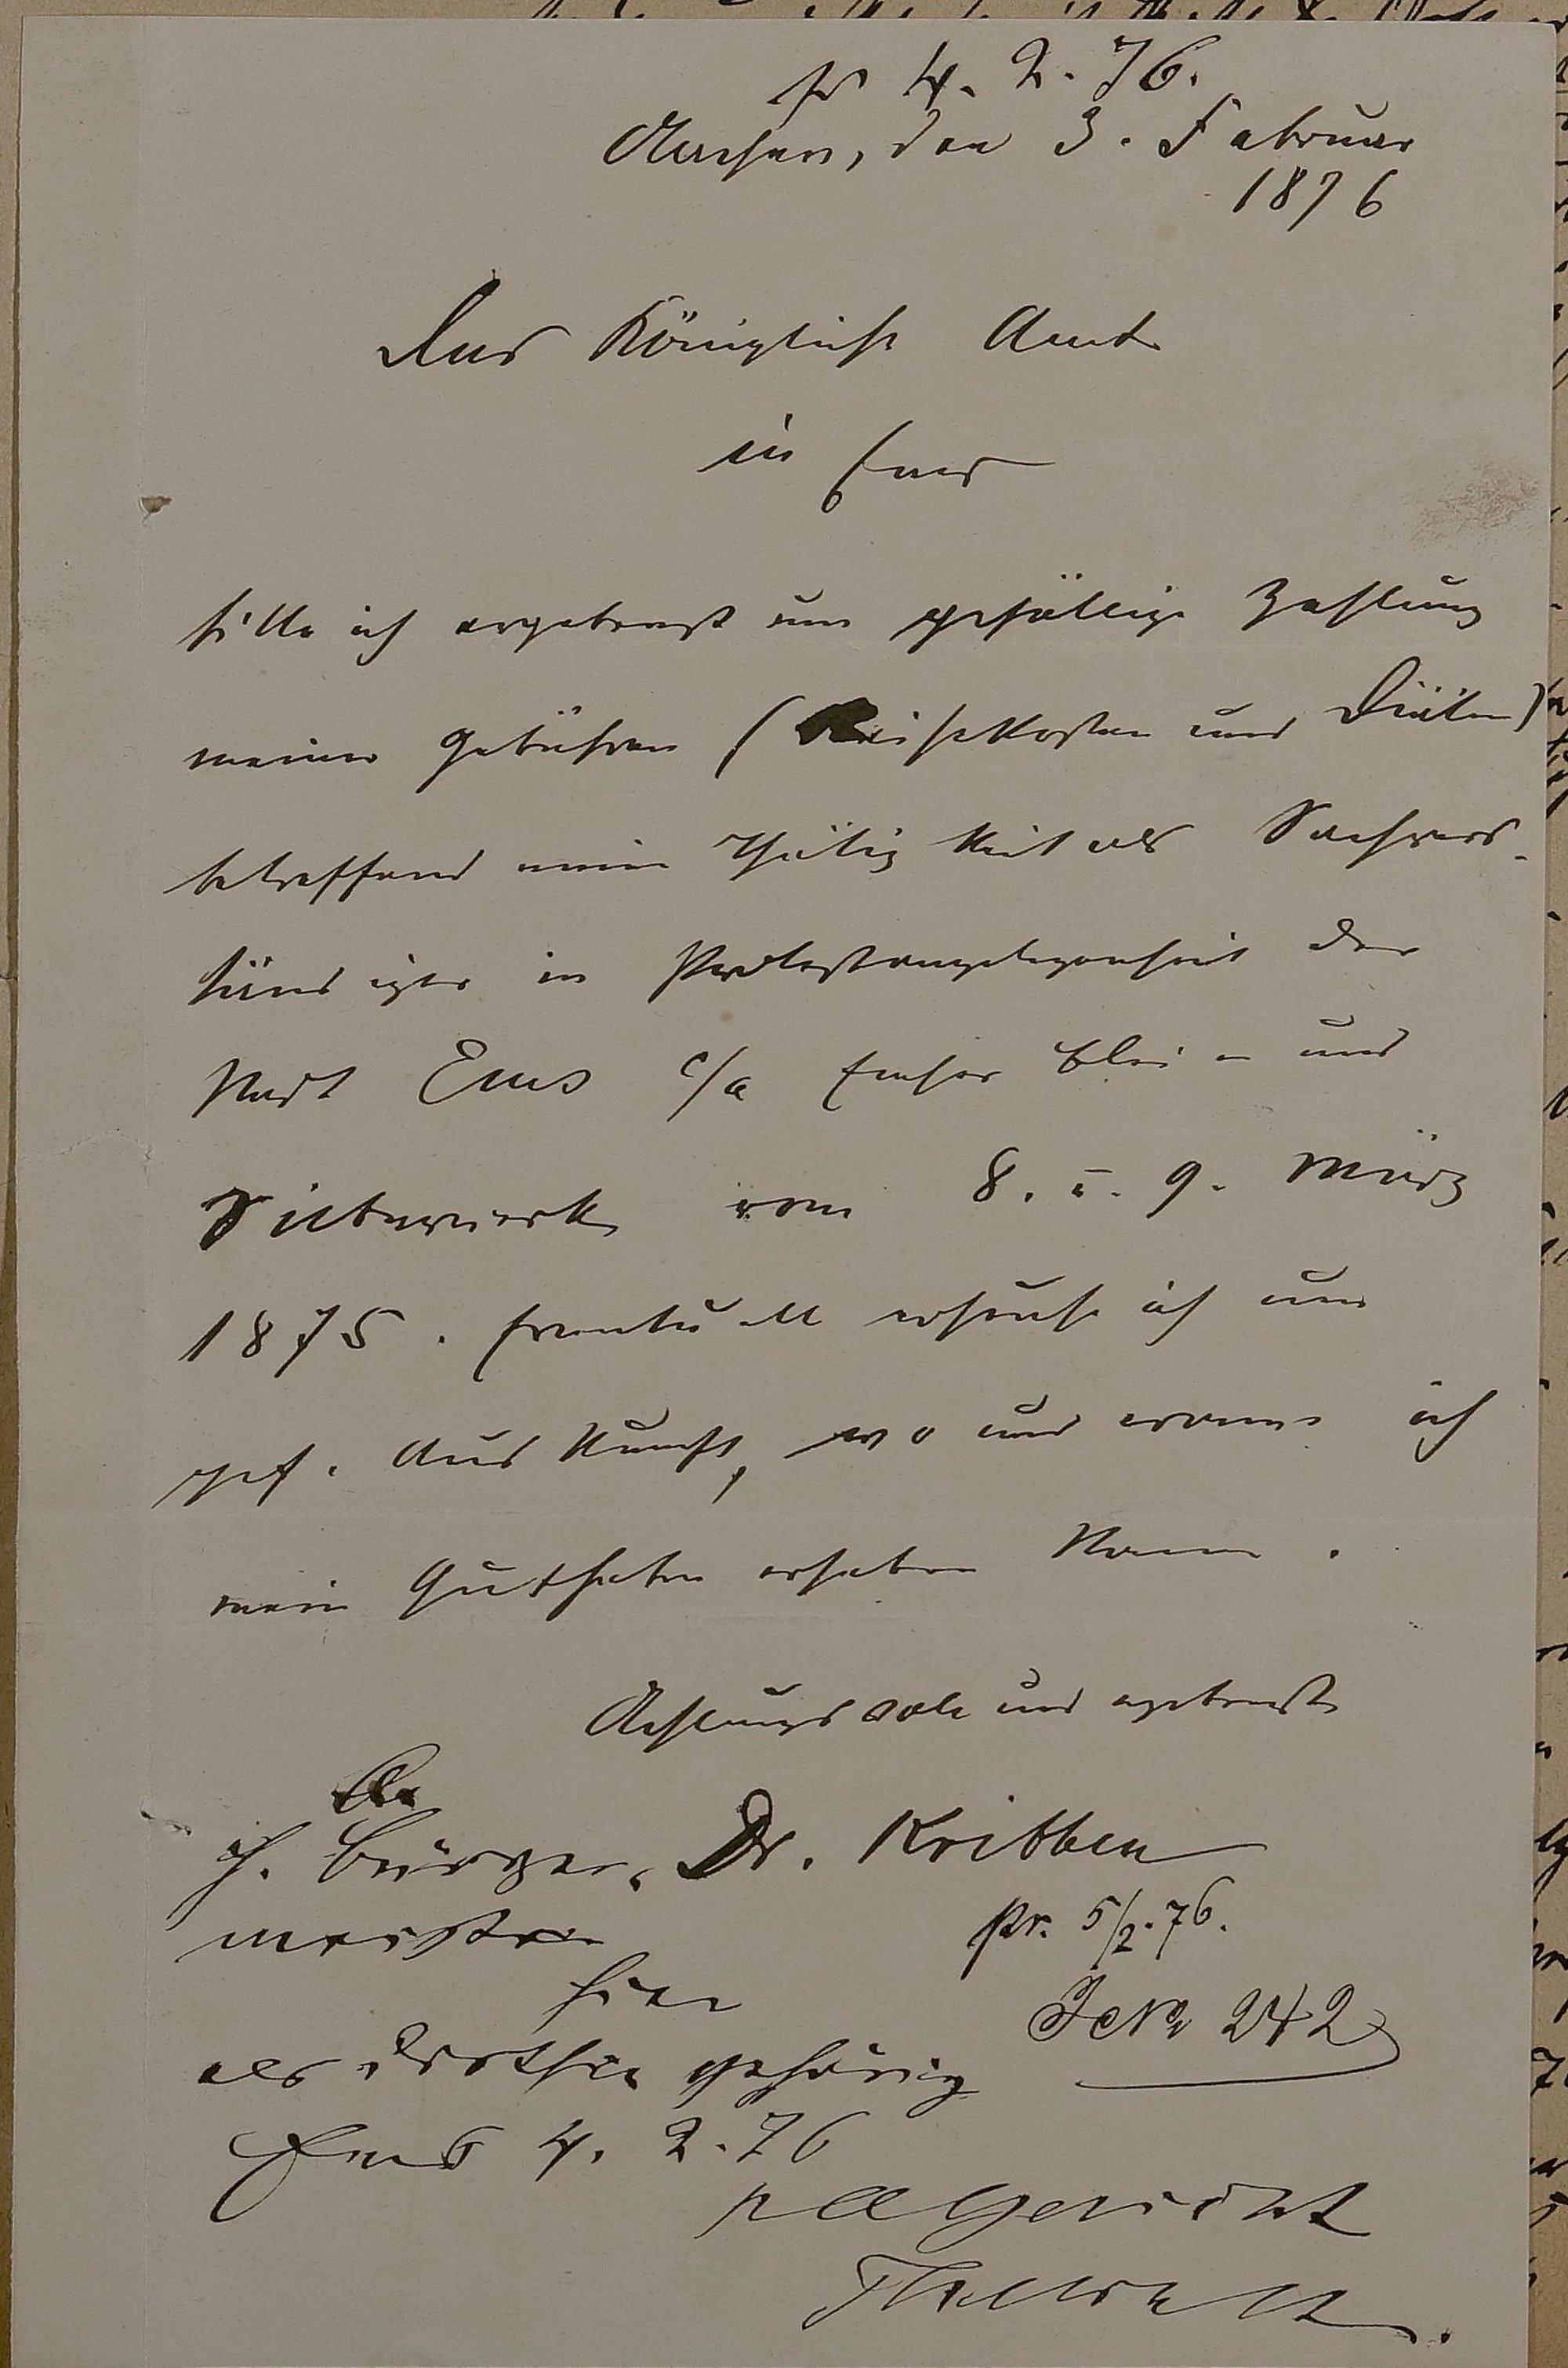 pr 4. 2. 76.
Aachen, den 3. Februar
1876
Das Königliche Amt
in Ems
bitte ich ergebenst um gefällige Zahlung
meiner Gebühren (Reisekosten und Diäten)
betreffend meine Thätigkeit als Sachvers-
tändiger in Protestangelegenheit der
Stadt Ems c/a Emser Blei- und
Silberwerk vom 8. u. 9. März
1875. Eventuell ersuche ich um
gef. Auskunft, wo und wann ich
mein Guthaben erheben kann.
Achtungsvoll und ergebenst
Dr. Kribben
H. Bürger-
meister
hier
als dorthin gehörig
Ems 4. 2. 76
pr. 5/2. 76.
JNo 242
K A Gericht